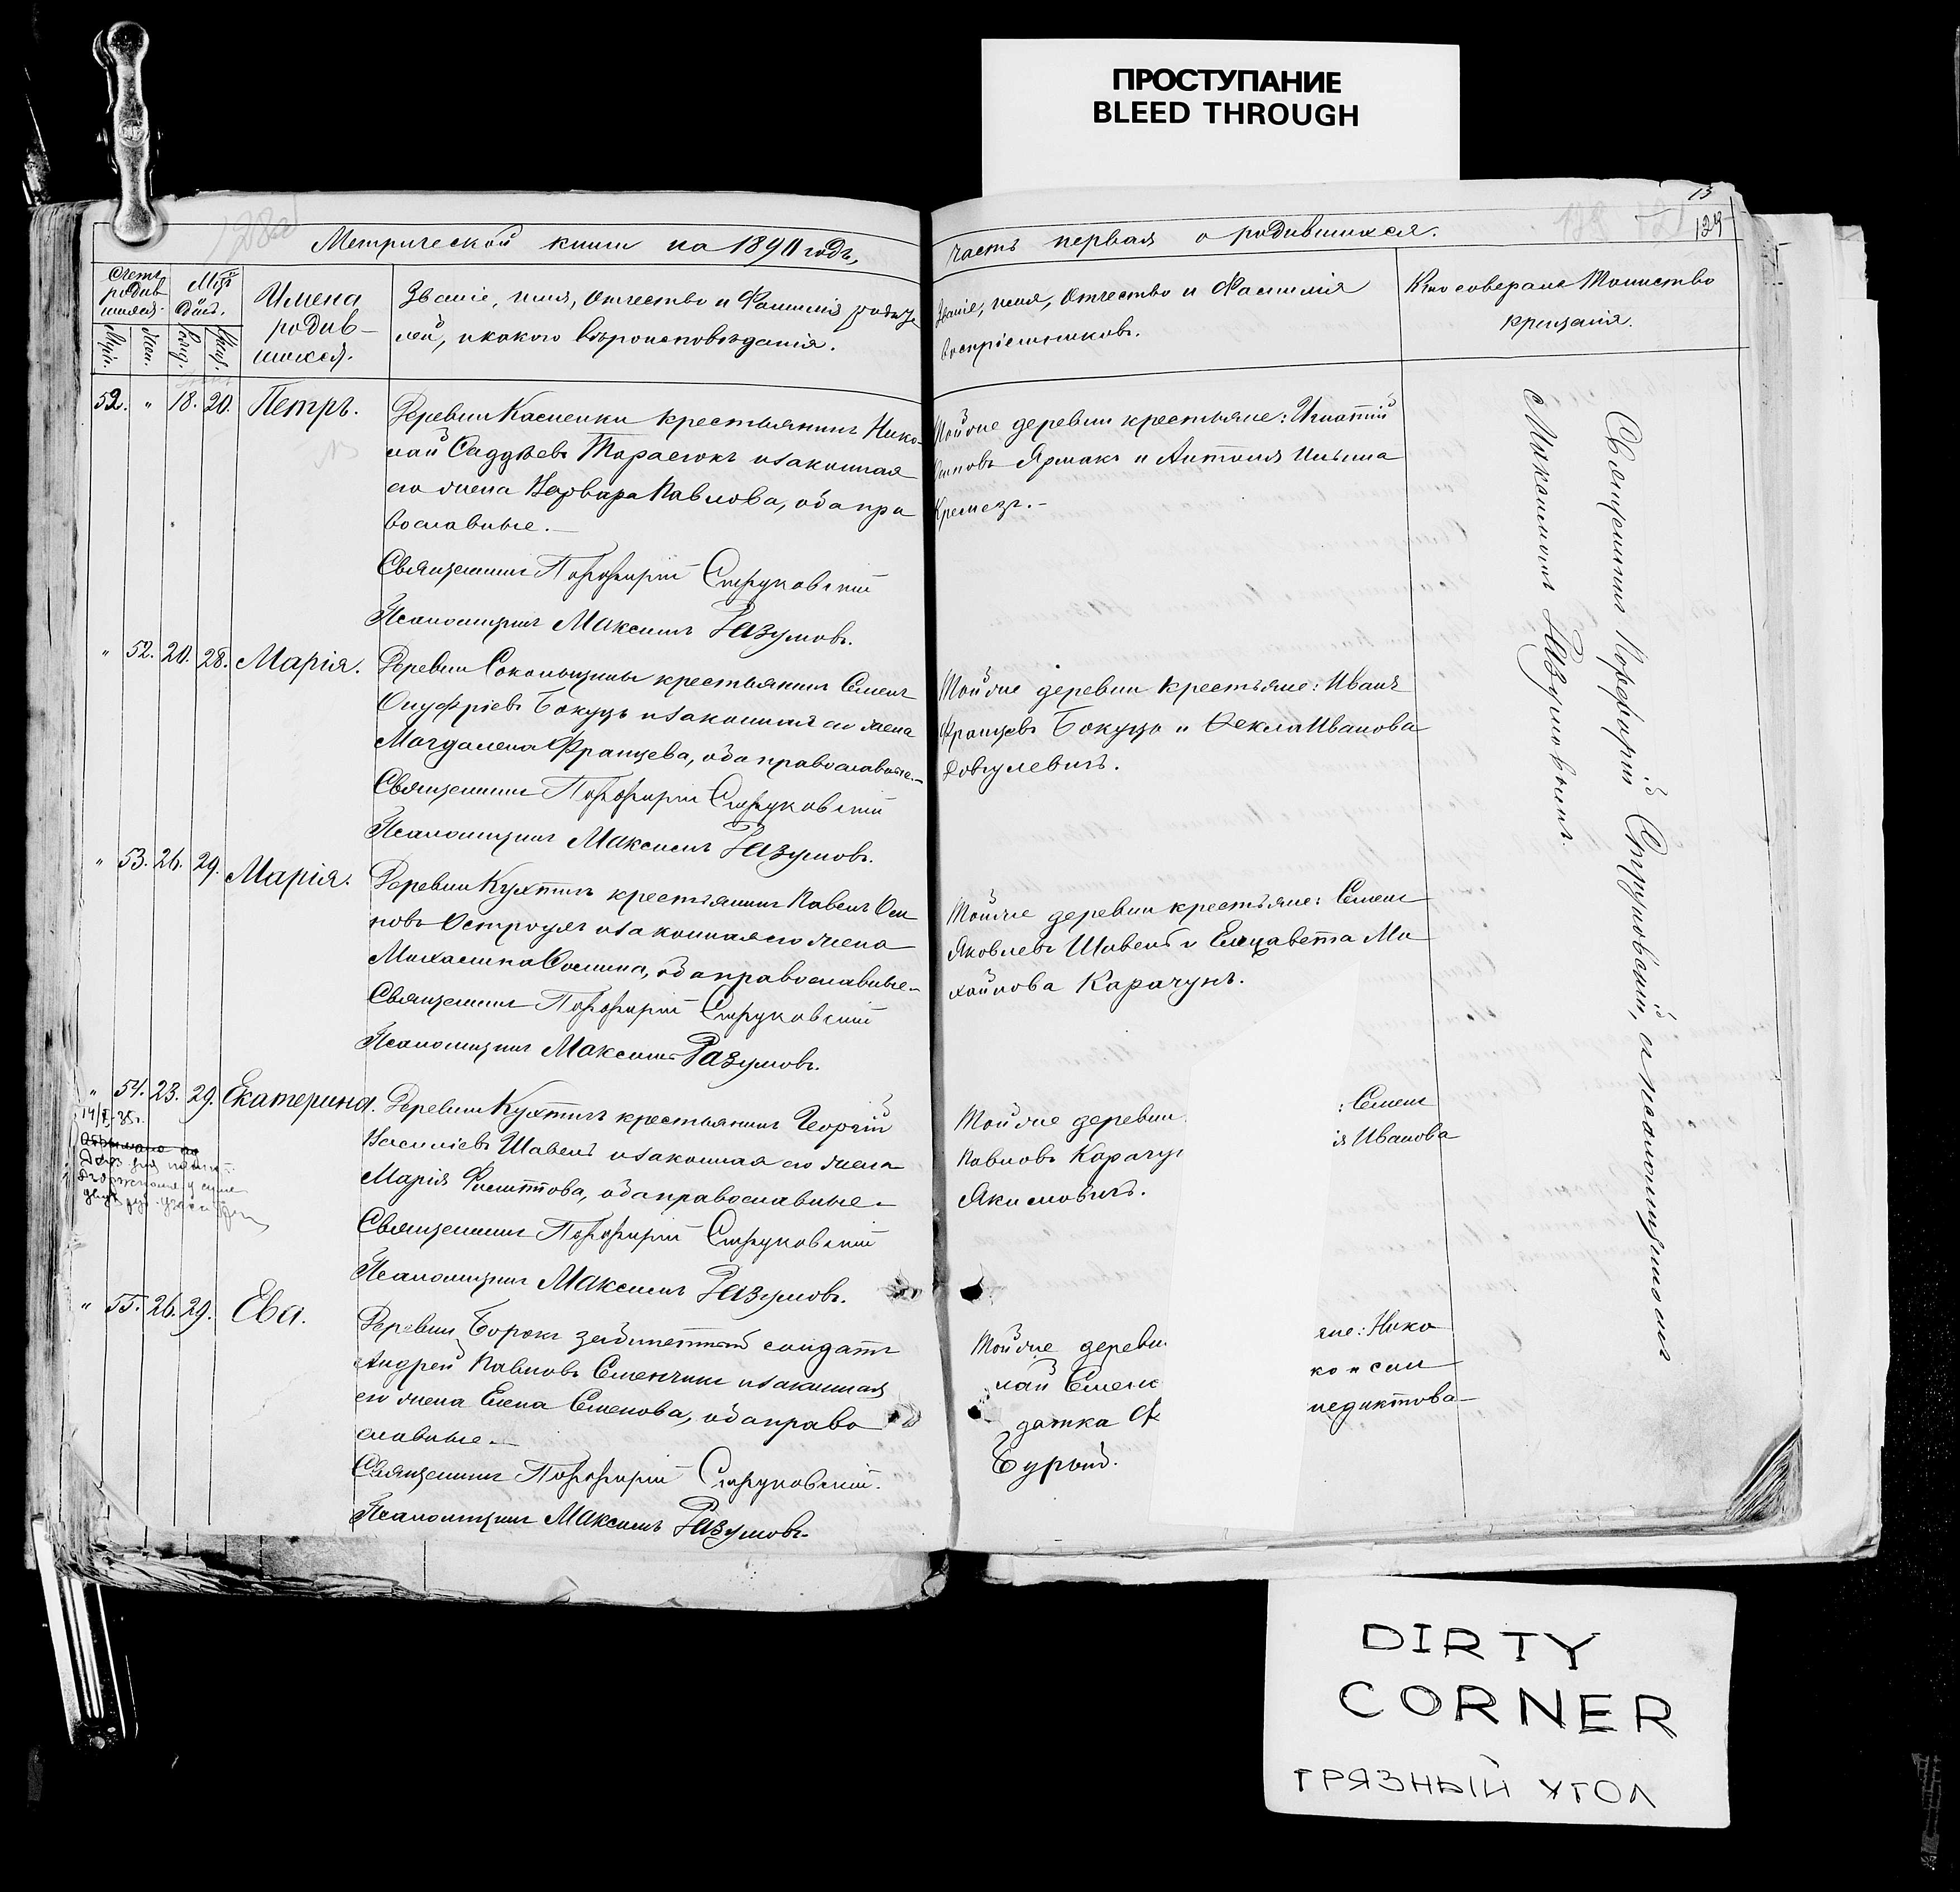 ПРОСТУПАНИЕ
BLEED THROUGH
13
129
Метрической книги на 1890 годъ,
часть первая о родившихся.
Счетъ родившихся.
Муж.
Жен.
Мѣс. и день.
Рожд.
Крещ.
Имена
родив-
шихся.
Званіе, имя, отчество и Фамилія родите
лей, и какого вѣроисповѣданія.
Званіе, имя, отчество и Фамилія
воспріемниковъ.
Кто совершалъ таинство
крещенія.
52. " 18. 20. Петръ.
Деревни Касненки крестьянинъ Нико-
лай Саддѣевъ Тарасюкъ и законная
его жена Варвара Павлова, оба пра
вославные.
Священникъ Порфирій Струковскій
Псаломщикъ Максимъ Разумовъ.
Той же деревни крестьяне: Игнатій
Ярмакъ и Антонія Ильина
Кремезъ.-
" 52. 20. 28. Марія.
Деревни Сокольщины крестьянинъ Семенъ
Онуфріевъ Бокуцъ и законная его жена
Магдалена Францева, оба православные.-
Священникъ Порфирій Струковскій
Псаломщикъ Максимъ Разумовъ.
Той же деревни крестьяне: Иванъ
Францевъ Бокуцъ и Ѳекла Иванова
Довгулевичъ.
" 53. 26. 29. Марія.
Деревни Кухтичъ крестьянинъ Павелъ Оси
повъ Остроухъ и законная его жена
Михалина Осипова, оба православные.-
Священникъ Порфирій Струковскій
Псаломщикъ Максимъ Разумовъ.
Той же деревни крестьяне: Семенъ
Яковлевъ Шавель и Елизавета Ми
хайлова Карачунъ.
" 54. 23. 29. Екатерина.
Деревни Кухтичъ крестьянинъ Георгій
Василіевъ Шавель и законная его жена
Марія Филиппова, оба православные.-
Священникъ Порфирій Струковскій
Псаломщикъ Максимъ Разумовъ.
Той же деревни : Семенъ
Павловъ Карачу ія Иванова
Якимовичъ.
" 55. 26. 29. Ева.
Деревни Борокъ солдатъ
Андрей Павловъ Семенчикъ и законная
его жена Елена Семенова, оба право
славные.-
Священникъ Порфирій Струковскій.
Псаломщикъ Максимъ Разумовъ.
Той же деревн яне: Нико
лай Семен ко и сол
датка недиктова
Бурый.
Священникъ Порфирій Струковскій, съ псаломщикомъ
Максимомъ Разумовымъ.
DIRTY
CORNER
ГРЯЗНЫЙ УГОЛ